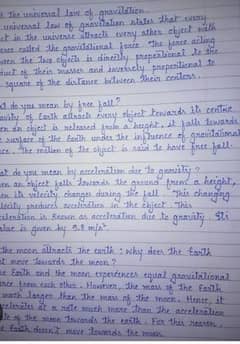 the universal law of gravitation.
universal law of gravitation states that every
ct in the universe attracts every other object with
orce called the gravitational force. The force acting
ween the two objects is directly proportional to the
duct of their masses and inversely proportional to
square of the distance between their centers.
at do you mean by free fall?
avity of Earth attracts every object towards its centre.
en an object is released from a height, it falls towards
surface of the Earth under the influence of gravitational
ce. The motion of the object is said to have free fall.
at do you mean by acceleration due to gravity?
en an object falls towards the ground from a height,
en its velocity changes during the fall. This changing
locity produces acceleration in the object. This
celeration is known as acceleration due to gravity. Its
alue is given by 9.8 m/s².
the moon attracts the earth; why does the Earth
t move towards the moon?
e Earth and the moon experiences equal gravitational
orce from each other. However, the mass of the Earth
much larger than the mass of the moon. Hence, it
celerates at a rate much more than the acceleration
of the moon towards the earth. For this reason,
e Earth doesn't move towards the moon.